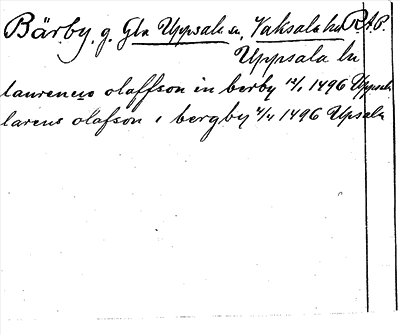 Bärby, g. Gla Uppsala sn, Vaksala hd RAP.
Uppsala ln
laurencius olaffson in berby 14/1 1496 Uppsala
larens olafson i bergby 4/4 1496 Upsala